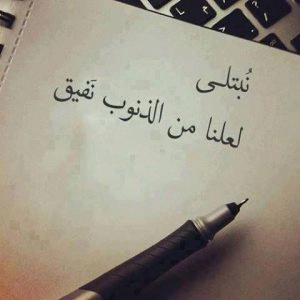 نُبتلـى
لعلنا من الذنوب نَفيق